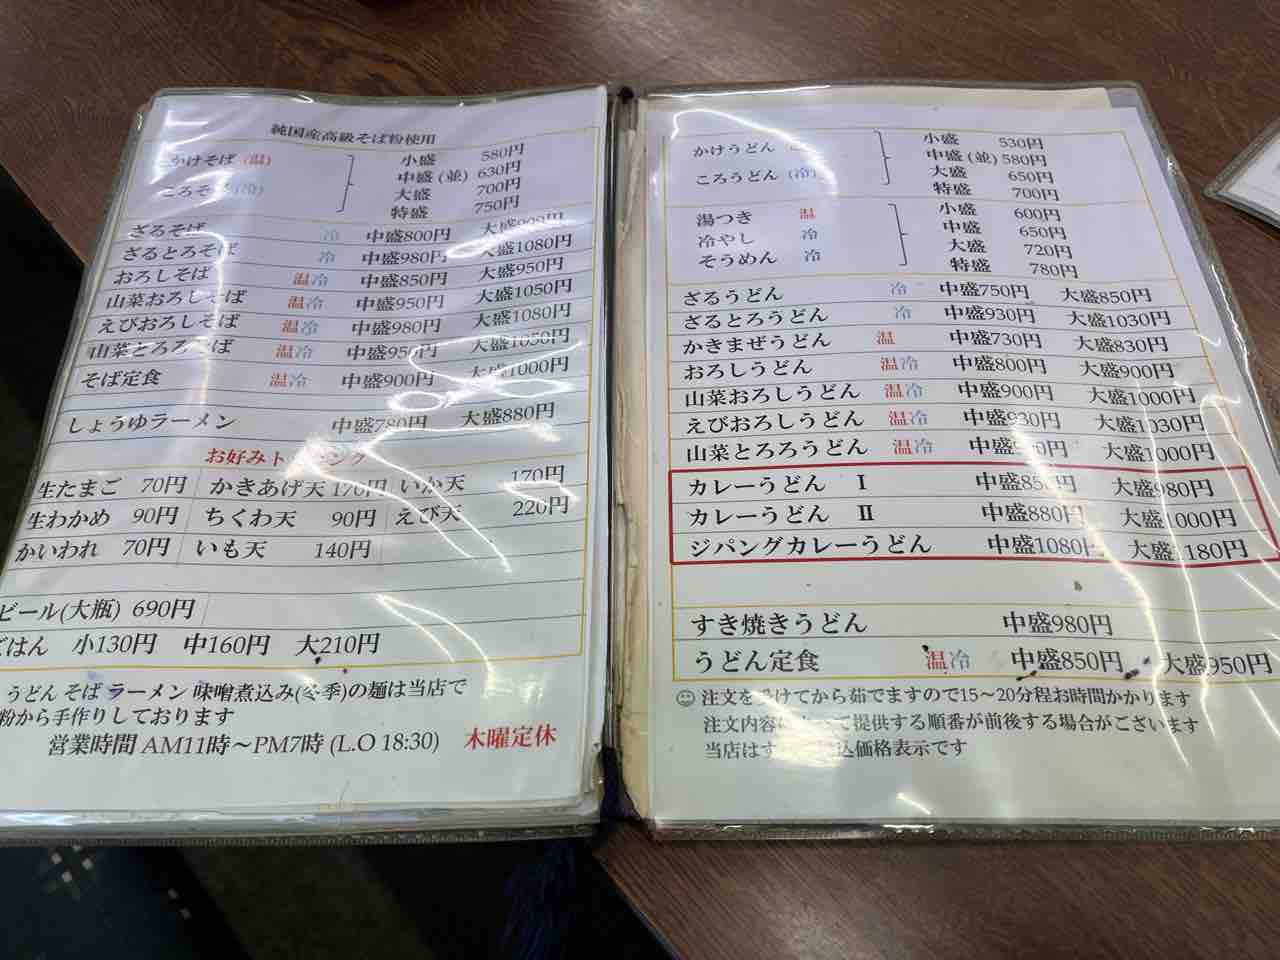 純国産高級そば粉使用
かけそば (温) 小盛 580円
中盛 (並) 630円
ころそば (冷) 大盛 700円
特盛 750円
ざるそば 冷 中盛800円 大盛900円
ざるとろそば 冷 中盛980円 大盛1080円
おろしそば 温冷 中盛850円 大盛950円
山菜おろしそば 温冷 中盛950円 大盛1050円
えびおろしそば 温冷 中盛980円 大盛1080円
山菜とろろそば 温冷 中盛950円 大盛1050円
そば定食 温冷 中盛900円 大盛1000円
しょうゆラーメン 中盛780円 大盛880円
お好みト ング
生たまご 70円 かきあげ天 170円 いか天 170円
生わかめ 90円 ちくわ天 90円 えび天 220円
かいわれ 70円 いも天 140円
ビール(大瓶) 690円
ごはん 小130円 中160円 大210円
うどん そば ラーメン 味噌煮込み(冬季)の麺は当店で
粉から手作りしております
営業時間 AM11時〜PM7時 (L.O 18:30) 木曜定休
かけうどん 小盛 530円
中盛 (並) 580円
ころうどん (冷) 大盛 650円
特盛 700円
湯つき 温 小盛 600円
冷やし 冷 中盛 650円
そうめん 冷 大盛 720円
特盛 780円
ざるうどん 冷 中盛750円 大盛850円
ざるとろうどん 冷 中盛930円 大盛1030円
かきまぜうどん 温 中盛730円 大盛830円
おろしうどん 温冷 中盛800円 大盛900円
山菜おろしうどん 温冷 中盛900円 大盛1000円
えびおろしうどん 温冷 中盛930円 大盛1030円
山菜とろろうどん 温冷 中盛 大盛1000円
カレーうどん Ⅰ 中盛850円 大盛980円
カレーうどん Ⅱ 中盛880円 大盛1000円
ジパングカレーうどん 中盛1080円 大盛1180円
すき焼きうどん 中盛980円
うどん定食 温冷 中盛850円 大盛950円
注文を受けてから茹でますので15〜20分程お時間かかります
注文内容によって提供する順番が前後する場合がございます
当店は 込価格表示です